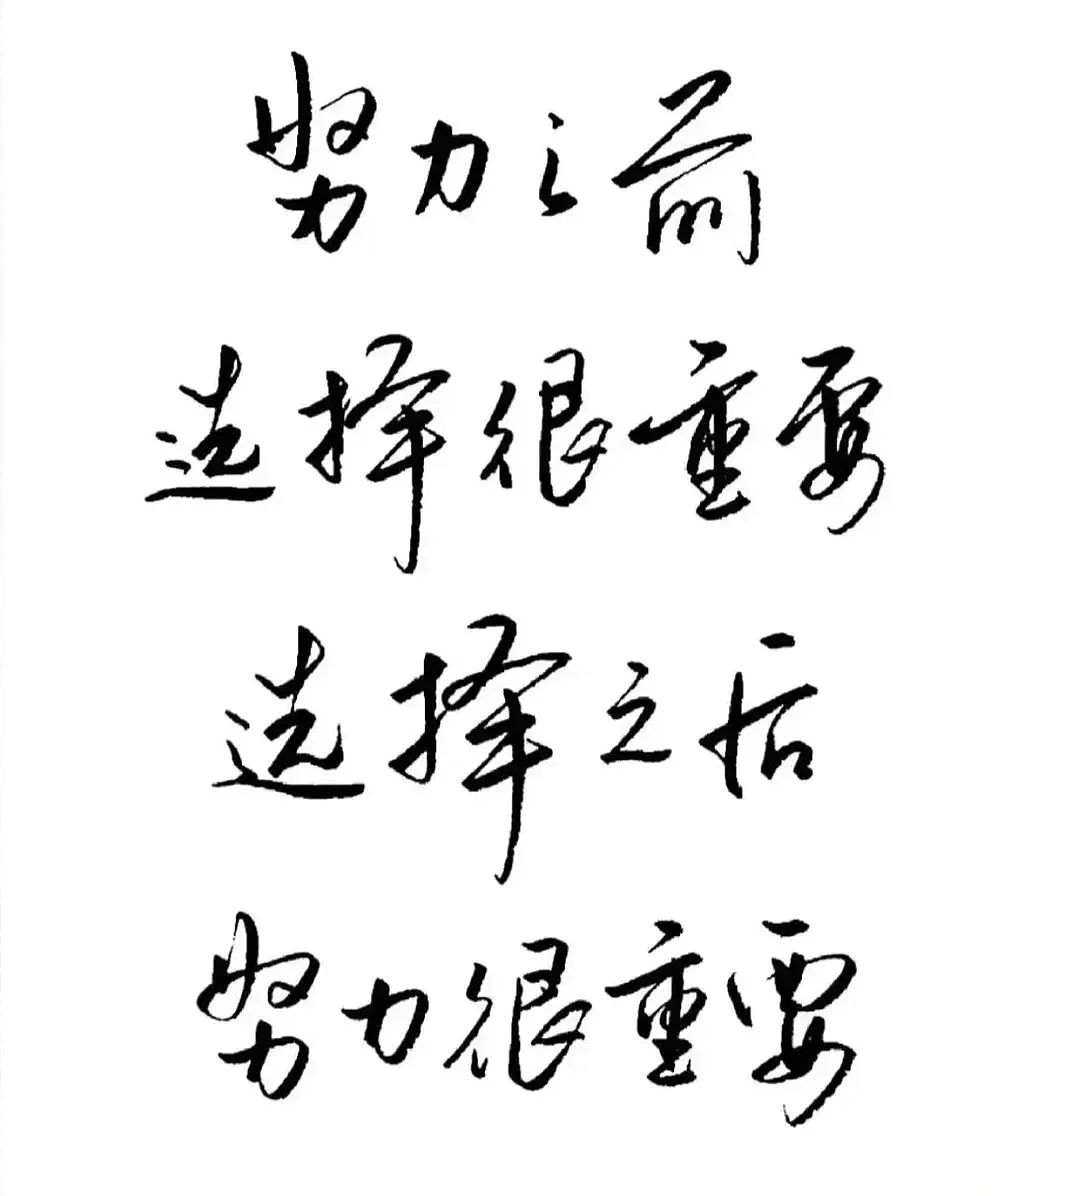 努力之前
选择很重要
选择之后
努力很重要